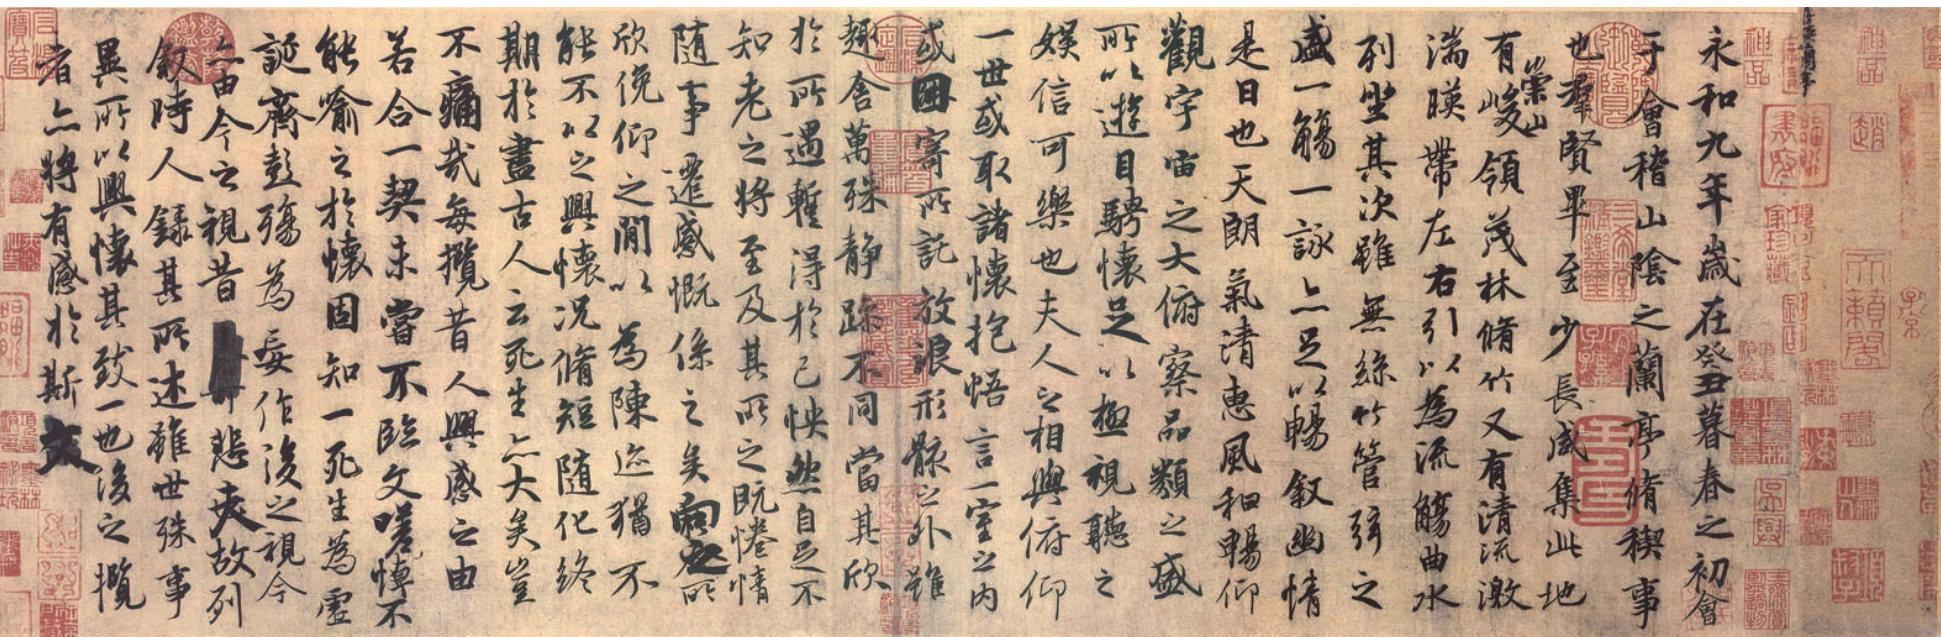 永和九年歲在癸丑暮春之初會
于會稽山陰之蘭亭脩稧事
也羣賢畢至少長咸集此地
有崇山峻領茂林脩竹又有清流激
湍暎帶左右引以為流觴曲水
列坐其次雖無絲竹管弦之
盛一觴一詠亦足以暢敘幽情
是日也天朗氣清惠風和暢仰
觀宇宙之大俯察品類之盛
所以遊目騁懷足以極視聽之
娛信可樂也夫人之相與俯仰
一世或取諸懷抱悟言一室之內
或因寄所託放浪形骸之外雖
趣舍萬殊靜躁不同當其欣
於所遇暫得於己怏然自足不
知老之將至及其所之既惓情
隨事遷感慨係之矣向之所
欣俛仰之閒以為陳迹猶不
能不以之興懷況脩短隨化終
期於盡古人云死生亦大矣豈
不痛哉每攬昔人興感之由
若合一契未嘗不臨文嗟悼不
能喻之於懷固知一死生為虛
誕齊彭殤為妄作後之視今
亦由今之視昔悲夫故列
敘時人錄其所述雖世殊事
異所以興懷其致一也後之攬
者亦將有感於斯文
神品
神品